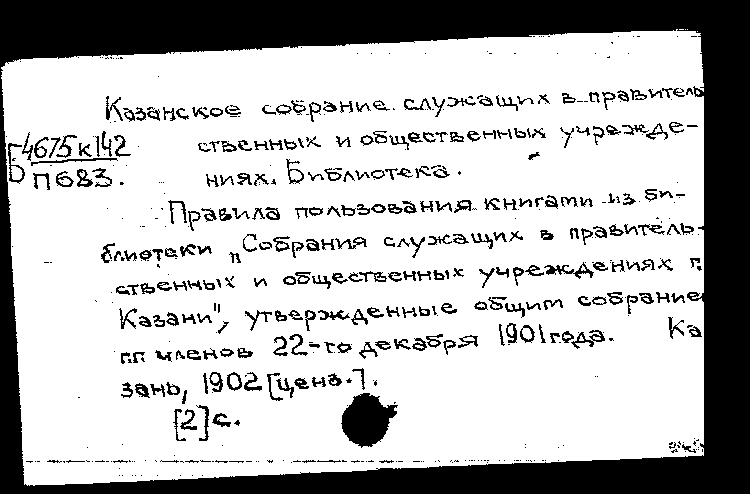 Казанское собрание служащих в правитель
Г 4675к142
Б П683.
ственных и общественных учрежде-
ниях. Библиотека.
Правила пользования книгами из би-
блиотеки „Собрания служащих в правитель-
ственных и общественных учреждениях г.
Казани", утвержденные общим собрание
гг членов 22-го декабря 1901 года. Ка
зань, 1902 [ценз.].
[2] с.